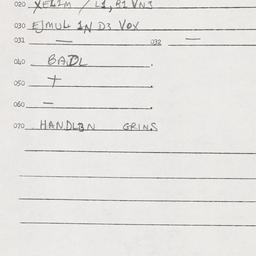 020 XELIM / L1, B1 VN3
030 EJMUL IN D3 VOX
031 — 032 —
040 BADL .
050 + .
060 — .
070 HANDLBN GRINS